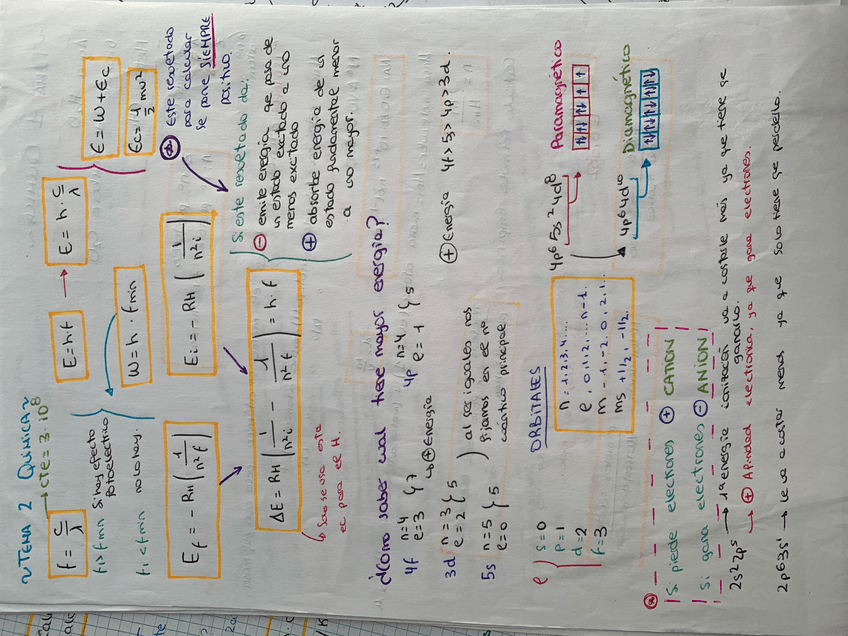 ~ TEMA 2 QUÍMICA ~
f = c/λ → cte = 3·10⁸
E = h·f → E = h · c/λ
E = W + Ec
Ec = 1/2 mv²
f₁ > f min Si hay efecto fotoeléctrico
f₁ < f min no lo hay.
W = h · f min
Este resultado
para calcular
se pone SIEMPRE
positivo.
Ef = - RH (1/n²f)
Ei = - RH (1/n²i)
ΔE = RH (1/n²i - 1/n²f) = h·f
Solo se usa esta
ec para el H.
Si este resultado da:
⊖ emite energía, que pasa de
un estado excitado a uno
menos excitado
⊕ absorbe energía de un
estado fundamental menor
a uno mayor.
¿Como saber cual tiene mayor energía?
4f n=4 } 7
e=3
4p n=4 } 5
e=1
↳ ⊕ Energía
3d n=3 } 5
e=2
5s n=5 } 5
e=0
) al ser iguales nos
fijamos en el nº
cuántico principal
⊕ Energía 4f > 5s > 4p > 3d.
ORBITALES
e s=0
p=1
d=2
f=3
n: 1, 2, 3, 4, ...
e, 0, 1, 2, ... n-1.
m -1, -2, 0, 2, 1..
ms +1/2, -1/2.
4p⁶ 5s² 4d⁸ Paramagnético
4p⁶ 4d¹⁰ Diamagnético
Si pierde electrones ⊕ CATIÓN
Si gana electrones ⊖ ANIÓN
2s² 2p⁵ → 1ª energía ionización va a costarle más ya que tiene que
ganarlo.
→ ⊕ Afinidad electrónica, ya que gana electrones.
2p⁶ 3s¹ → le va a costar menos ya que solo tiene que perderlo.